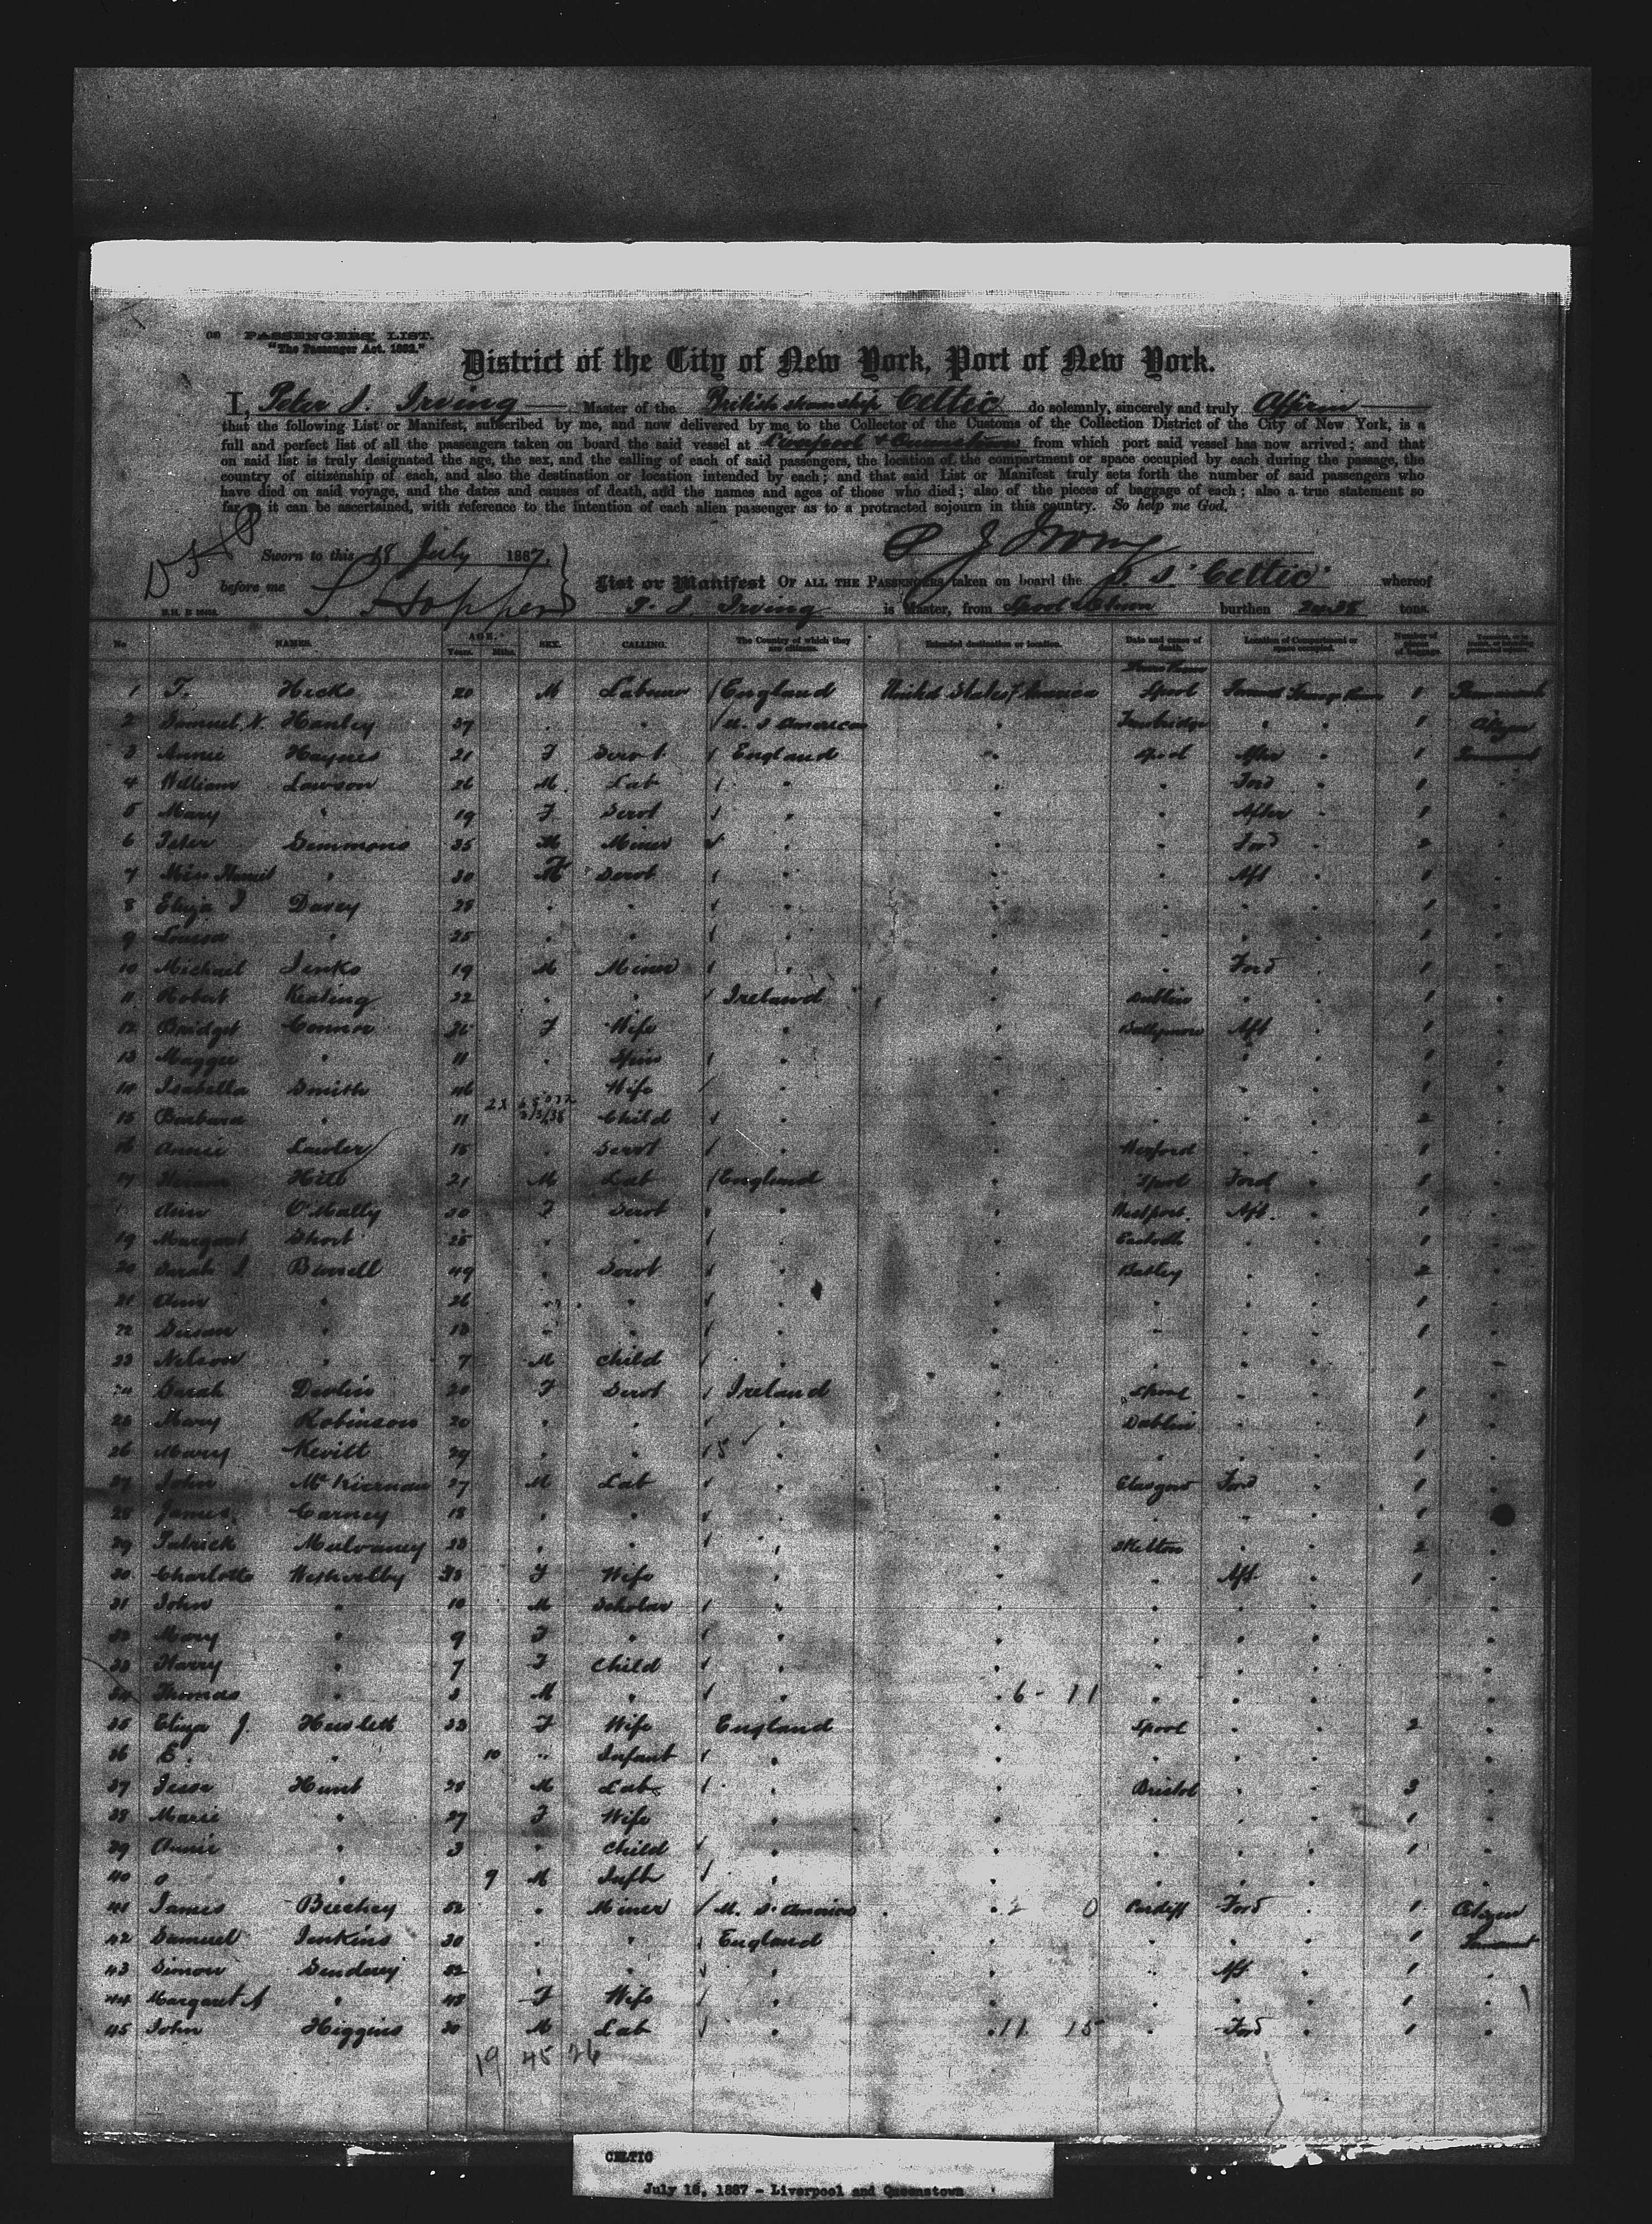 PASSENGERS' LIST.
"The Passenger Act. 1882."
District of the City of New York, Port of New York.
I, Peter J. Irving Master of the British steamship Celtic do solemnly, sincerely and truly Affirm
that the following List or Manifest, subscribed by me, and now delivered by me to the Collector of the Customs of the Collection District of the City of New York, is a
full and perfect list of all the passengers taken on board the said vessel at Liverpool & Queenstown from which port said vessel has now arrived; and that
on said list is truly designated the age, the sex, and the calling of each of said passengers, the location of the compartment or space occupied by each during the passage, the
country of citizenship of each, and also the destination or location intended by each; and that said List or Manifest truly sets forth the number of said passengers who
have died on said voyage, and the dates and causes of death, and the names and ages of those who died; also of the pieces of baggage of each; also a true statement so
far as it can be ascertained, with reference to the intention of each alien passenger as to a protracted sojourn in this country. So help me God.
P J Irving
Sworn to this 18 July 1887.
before me
List or Manifest OF ALL THE PASSENGERS taken on board the S. S. Celtic whereof
P. J. Irving is Master, from burthen tons.
No NAMES. AGE. Years. Mths. SEX. CALLING. The Country of which they are citizens. Intended destination or location. Date and cause of death. Location of Compartment or space occupied. Number of
1 T. Hicks 20 M Labourer England United States America Lpool 1 Permanent
2 Samuel N. Hanley 37 " " U. S America " " 1 Citizen
3 Annie Haynes 21 F Servt England " Lpool After " 1
4 William Lawson 26 M Lab " " " Ford " 1 "
5 Mary " 19 F Servt " " " After " 1 "
6 Peter Simmons 35 M Miner " " " Ford " 2 "
7 Miss " 30 F Servt " " " Aft " 1 "
8 Eliza J Davey 28 " " " " " " " 1 "
9 Louisa " 25 " " " " " " " 1 "
10 Michael Jenks 19 M Miner " " " Ford " 1 "
11 Robert Keating 22 " " Ireland " Dublin " " 1 "
12 Bridget Connor 36 F Wife " " Ballymore Aft " 1 "
13 Maggie " 11 " Spin " " " " " 1 "
14 Isabella Smith 46 Wife " " " " " 1 "
15 Barbara " 11 Child " " " " " 2 "
16 Annie Lawler 18 " Servt " " Wexford " " 1 "
17 Hill 21 M Lab England " Lpool Ford " 1 "
Ann O'Mally 30 F Servt " " Westport Aft " 1 "
19 Margaret Short 25 " " " " " " 1 "
20 Sarah J. Burrell 49 " Servt " " Batley " " 2 "
21 Ann " 26 " " " " " " " 1 "
22 Susan " 18 " " " " " " " 1 "
23 Nelson " 7 M Child " " " " " " "
24 Sarah Devlin 20 F Servt Ireland " Lpool " " 1 "
25 Mary Robinson 20 " " " " Dublin " " 1 "
26 Mary Nevitt 29 " " " " " " " 1 "
27 John McKiernan 27 M Lab " " Glasgow Ford " 1 "
28 James Carney 18 " " " " " " " 1
29 Patrick Mulvaney 23 " " " " Skelton " " 2 "
30 Charlotte 33 F Wife " " " Aft " 1 "
31 John " 10 M Scholar " " " " " "
32 Mary " 9 F " " " " " " " "
33 Harry " 7 F Child " " " " " "
34 Thomas " 3 M " " 6 - 11 " " " " "
35 Eliza J. Hewlett 33 F Wife England " Lpool " " 2 "
36 E. " 10 " Infant " " " " " " "
37 Jesse Hunt 28 M Lab " " Bristol " " 3 "
38 Marie " 27 F Wife " " " " " 1 "
39 Annie " 3 " Child " " " " " 1 "
40 " 9 M Inft " " " " " " "
41 James Beechey 52 " Miner U. S. America 2 0 Cardiff Ford " 1 Citizen
42 Samuel Jenkins 30 " " England " " " " 1
43 Simon 52 " " " " " Aft " 1 "
44 Margaret A " 48 F Wife " " " " " 1 "
45 John Higgins 30 M Lab " 11 15 " Ford " 1 "
19 45 26
CELTIC
July 18, 1887 - Liverpool and Queenstown